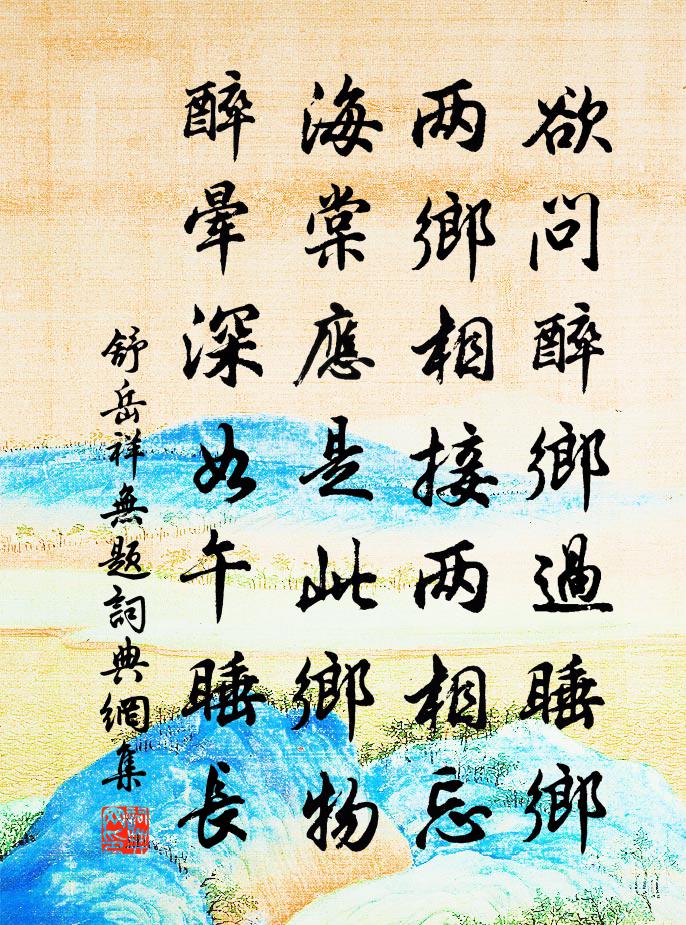 欲問醉鄉過睡鄉
两鄉相接两相忘
海棠應是此鄉物
醉暈深如午睡長
舒岳祥無題詞典網集